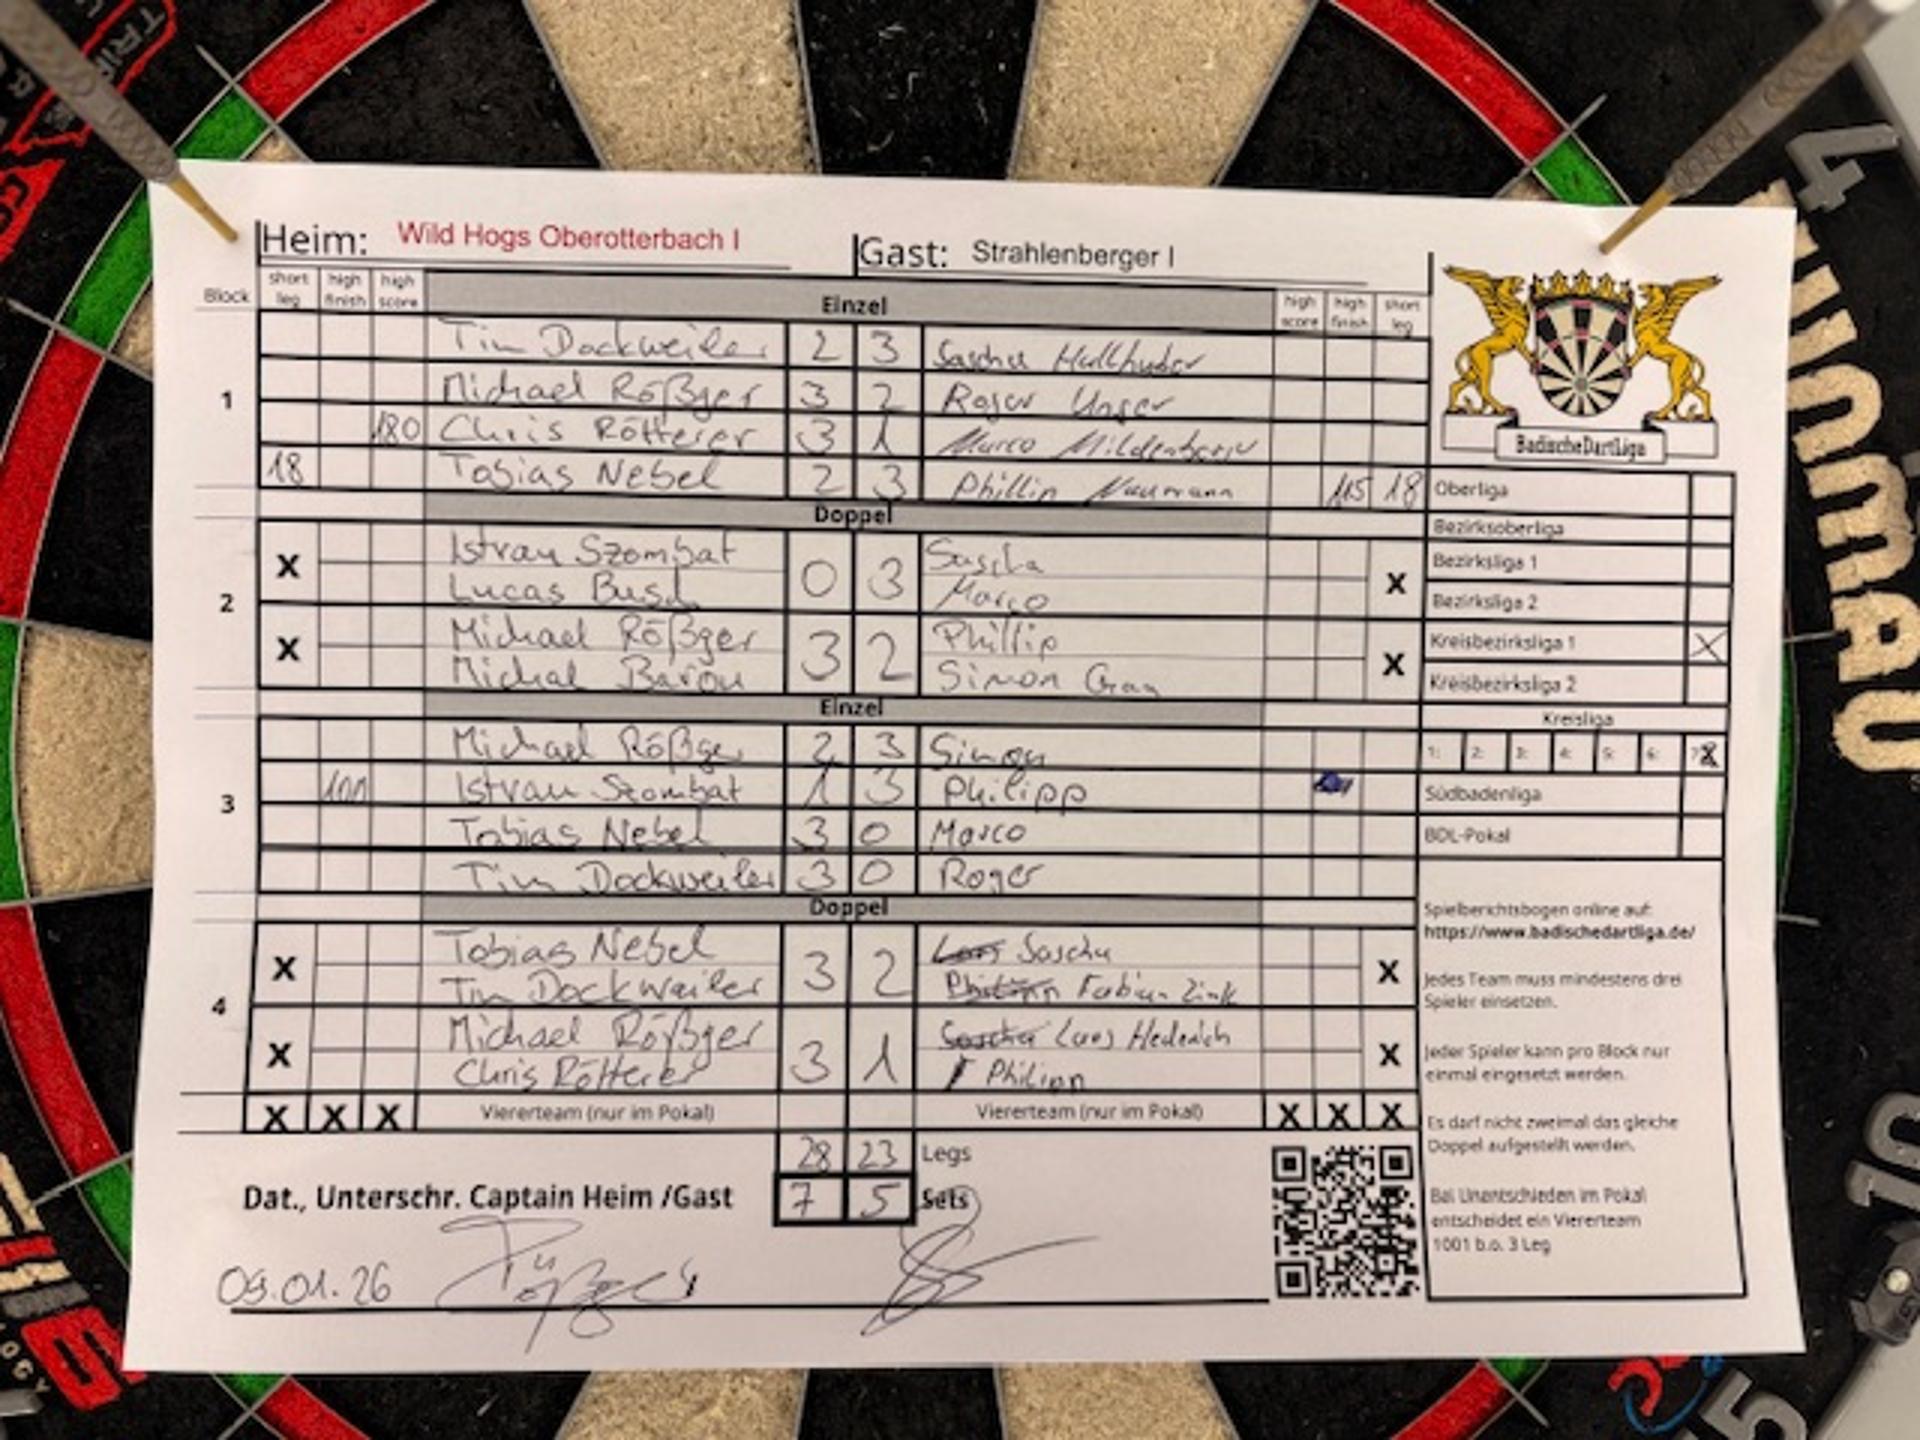 Heim: Wild Hogs Oberotterbach I Gast: Strahlenberger I
Block short leg high finish high score Einzel high score high finish short leg
1
Tim Dockweiler 2 3 Sascha Hullhuber
Michael Rößger 3 2 Roger Unger
180 Chris Rötterer 3 1 Marco Mildenberger
18 Tobias Nebel 2 3 Phillip Naumann 115 18
Doppel
2
X Istvan Szombat 0 3 Sascha X
Lucas Busch Marco
X Michael Rößger 3 2 Phillip X
Michal Baron Simon Gray
Einzel
3
Michael Rößger 2 3 Simon
100 Istvan Szombat 1 3 Philipp
Tobias Nebel 3 0 Marco
Tim Dockweiler 3 0 Roger
Doppel
4
X Tobias Nebel 3 2 Lars Sascha X
Tim Dockweiler Philipp Fabian Zink
X Michael Rößger 3 1 Sascha Lars Hederich X
Chris Rötterer Philipp
X X X Viererteam (nur im Pokal) Viererteam (nur im Pokal) X X X
28 23 Legs
Dat., Unterschr. Captain Heim /Gast 7 5 Sets
09.01.26
BadischeDartLiga
Oberliga
Bezirksoberliga
Bezirksliga 1
Bezirksliga 2
Kreisbezirksliga 1 X
Kreisbezirksliga 2
Kreisliga
1: 2: 3: 4: 5: 6: 7
Südbadenliga
BDL-Pokal
Spielberichtsbogen online auf:
https://www.badischedartliga.de/
Jedes Team muss mindestens drei
Spieler einsetzen.
Jeder Spieler kann pro Block nur
einmal eingesetzt werden.
Es darf nicht zweimal das gleiche
Doppel aufgestellt werden.
Bei Unentschieden im Pokal
entscheidet ein Viererteam
1001 b.o. 3 Leg
4
10
15